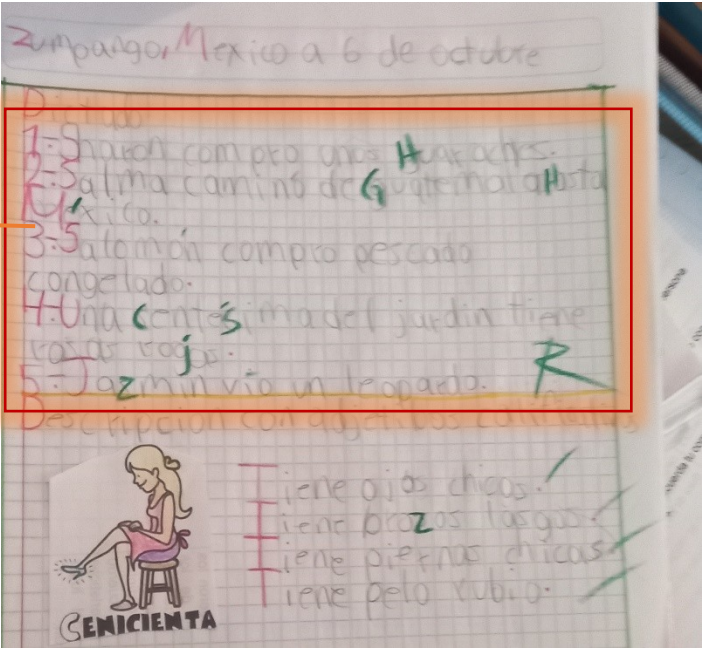 Zumpango, Mexico a 6 de octubre
Dictado
1-Sharon compro unos Huaraches.
2-Salma camino de Guatemala a Hasta
México.
3-Salomón compro pescado
congelado.
4-Una centésima del jardin tiene
rosas rojas.
5-Jazmin vio un leopardo. R
Descripcion con adjetibos
Tiene ojos chicos.
Tiene brozos largos.
Tiene piernas chicas
Tiene pelo rubio.
CENICIENTA